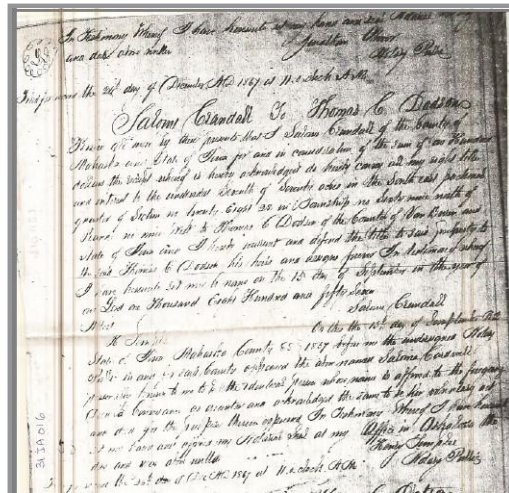 In Testimony Whereof I have hereunto set my hand and seal Notarial
and date above written Jonathan Notary Public
Filed for record the 24th day of December A.D. 1857 at 11 o clock A.M.
Salome Crandall To Thomas C. Dodson
Know all men by these presents that I Salome Crandall of the County of
Mahaska and State of Iowa for and in consideration of the sum of one Hundred
dollars the receipt whereof is hereby acknowledged do hereby convey all my right title
and interest to the undivided Seventh of Seventy acres in the South east
quarter of Section no twenty Eight 28 in Township no Sixty nine north of
Range no nine West to Thomas C Dodson of the County of Van Buren and
State of Iowa and I hereby warrant and defend the title to said property to
the said Thomas C Dodson his heirs and assigns In testimony whereof
I have hereunto set my name on the 15th day of September in the year of
our Lord one Thousand Eight Hundred and fifty Seven
Salome Crandall
Attest
H Temple On this the 15th day of September
State of Iowa Mahaska County SS 1857 before me the undersigned Notary
Public in and for said County appeared the above named Salome Crandall
personally known to me to be the identical person whose name is affixed to the foregoing
Deed of Conveyance as grantor and acknowledged the same to be her voluntary act
and deed for the purposes therein expressed In Testimony Whereof I have hereunto
set my hand and affixed my Notarial Seal at my Office in Oskaloosa the
day and year above written Henry Temple
Notary Public
24th day of Dec A.D. 1857 at 11 o clock A.M.
31IA016